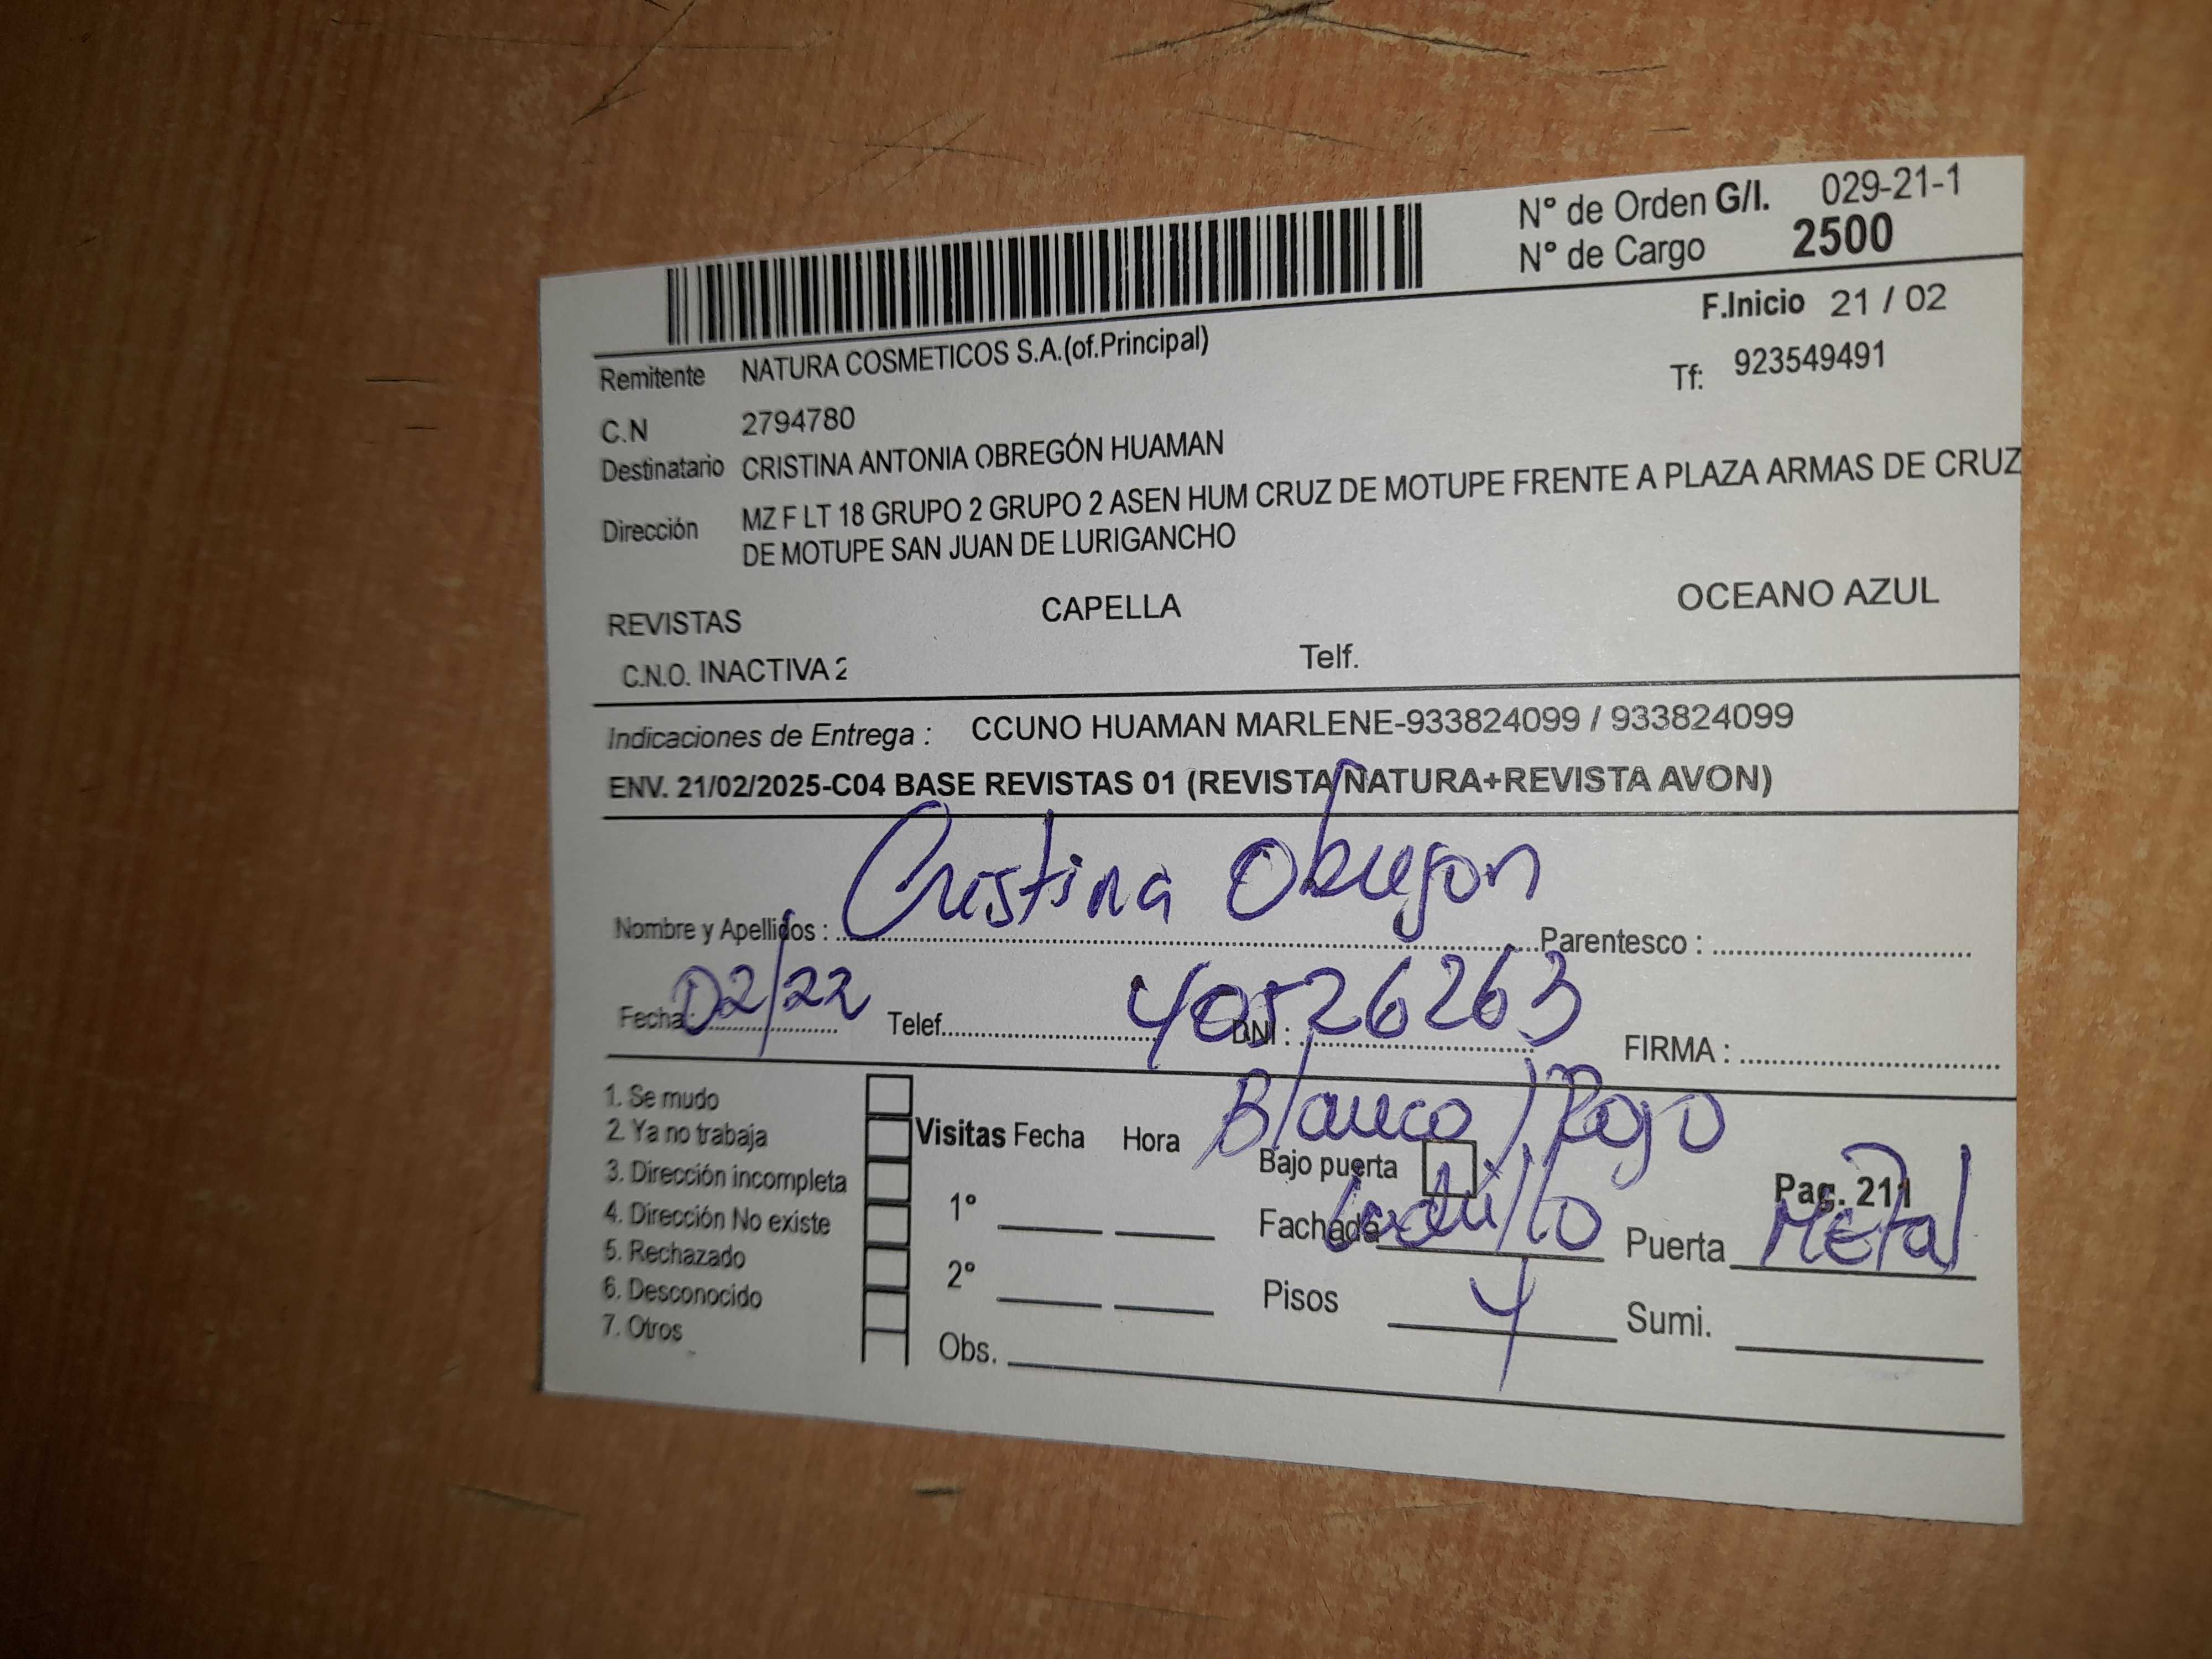 N° de Orden G/I. 029-21-1
N° de Cargo 2500
F.Inicio 21 / 02
Remitente NATURA COSMETICOS S.A.(of.Principal)
Tf: 923549491
C.N 2794780
Destinatario CRISTINA ANTONIA OBREGÓN HUAMAN
Dirección MZ F LT 18 GRUPO 2 GRUPO 2 ASEN HUM CRUZ DE MOTUPE FRENTE A PLAZA ARMAS DE CRUZ
DE MOTUPE SAN JUAN DE LURIGANCHO
REVISTAS CAPELLA OCEANO AZUL
C.N.O. INACTIVA 2 Telf.
Indicaciones de Entrega : CCUNO HUAMAN MARLENE-933824099 / 933824099
ENV. 21/02/2025-C04 BASE REVISTAS 01 (REVISTA NATURA+REVISTA AVON)
Nombre y Apellidos : Cristina Obregon Parentesco :
Fecha : 02/22 Telef. DNI : 40526263 FIRMA :
Blanco / Rojo
1. Se mudo
2. Ya no trabaja
3. Dirección incompleta
4. Dirección No existe
5. Rechazado
6. Desconocido
7. Otros
Visitas Fecha Hora
1°
2°
Obs.
Bajo puerta
Pag. 211
Fachada Ladrillo Puerta Metal
Pisos 4 Sumi.